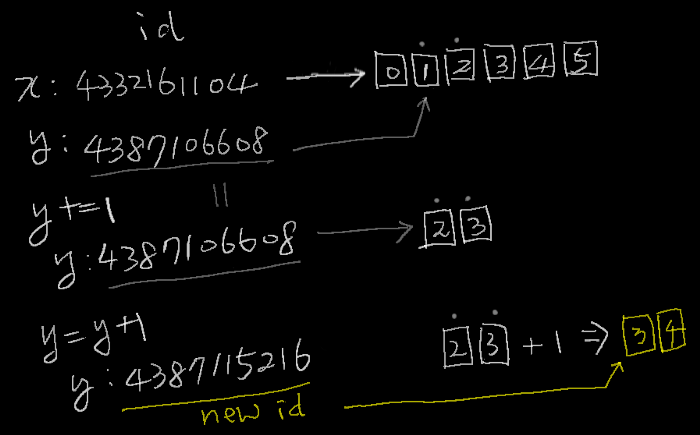 id
x: 4332161104 → 0 1 2 3 4 5
y: 4387106608
y+=1
y: 4387106608 → 2 3
y=y+1
2 3 + 1 ⇒ 3 4
y: 4387115216
new id